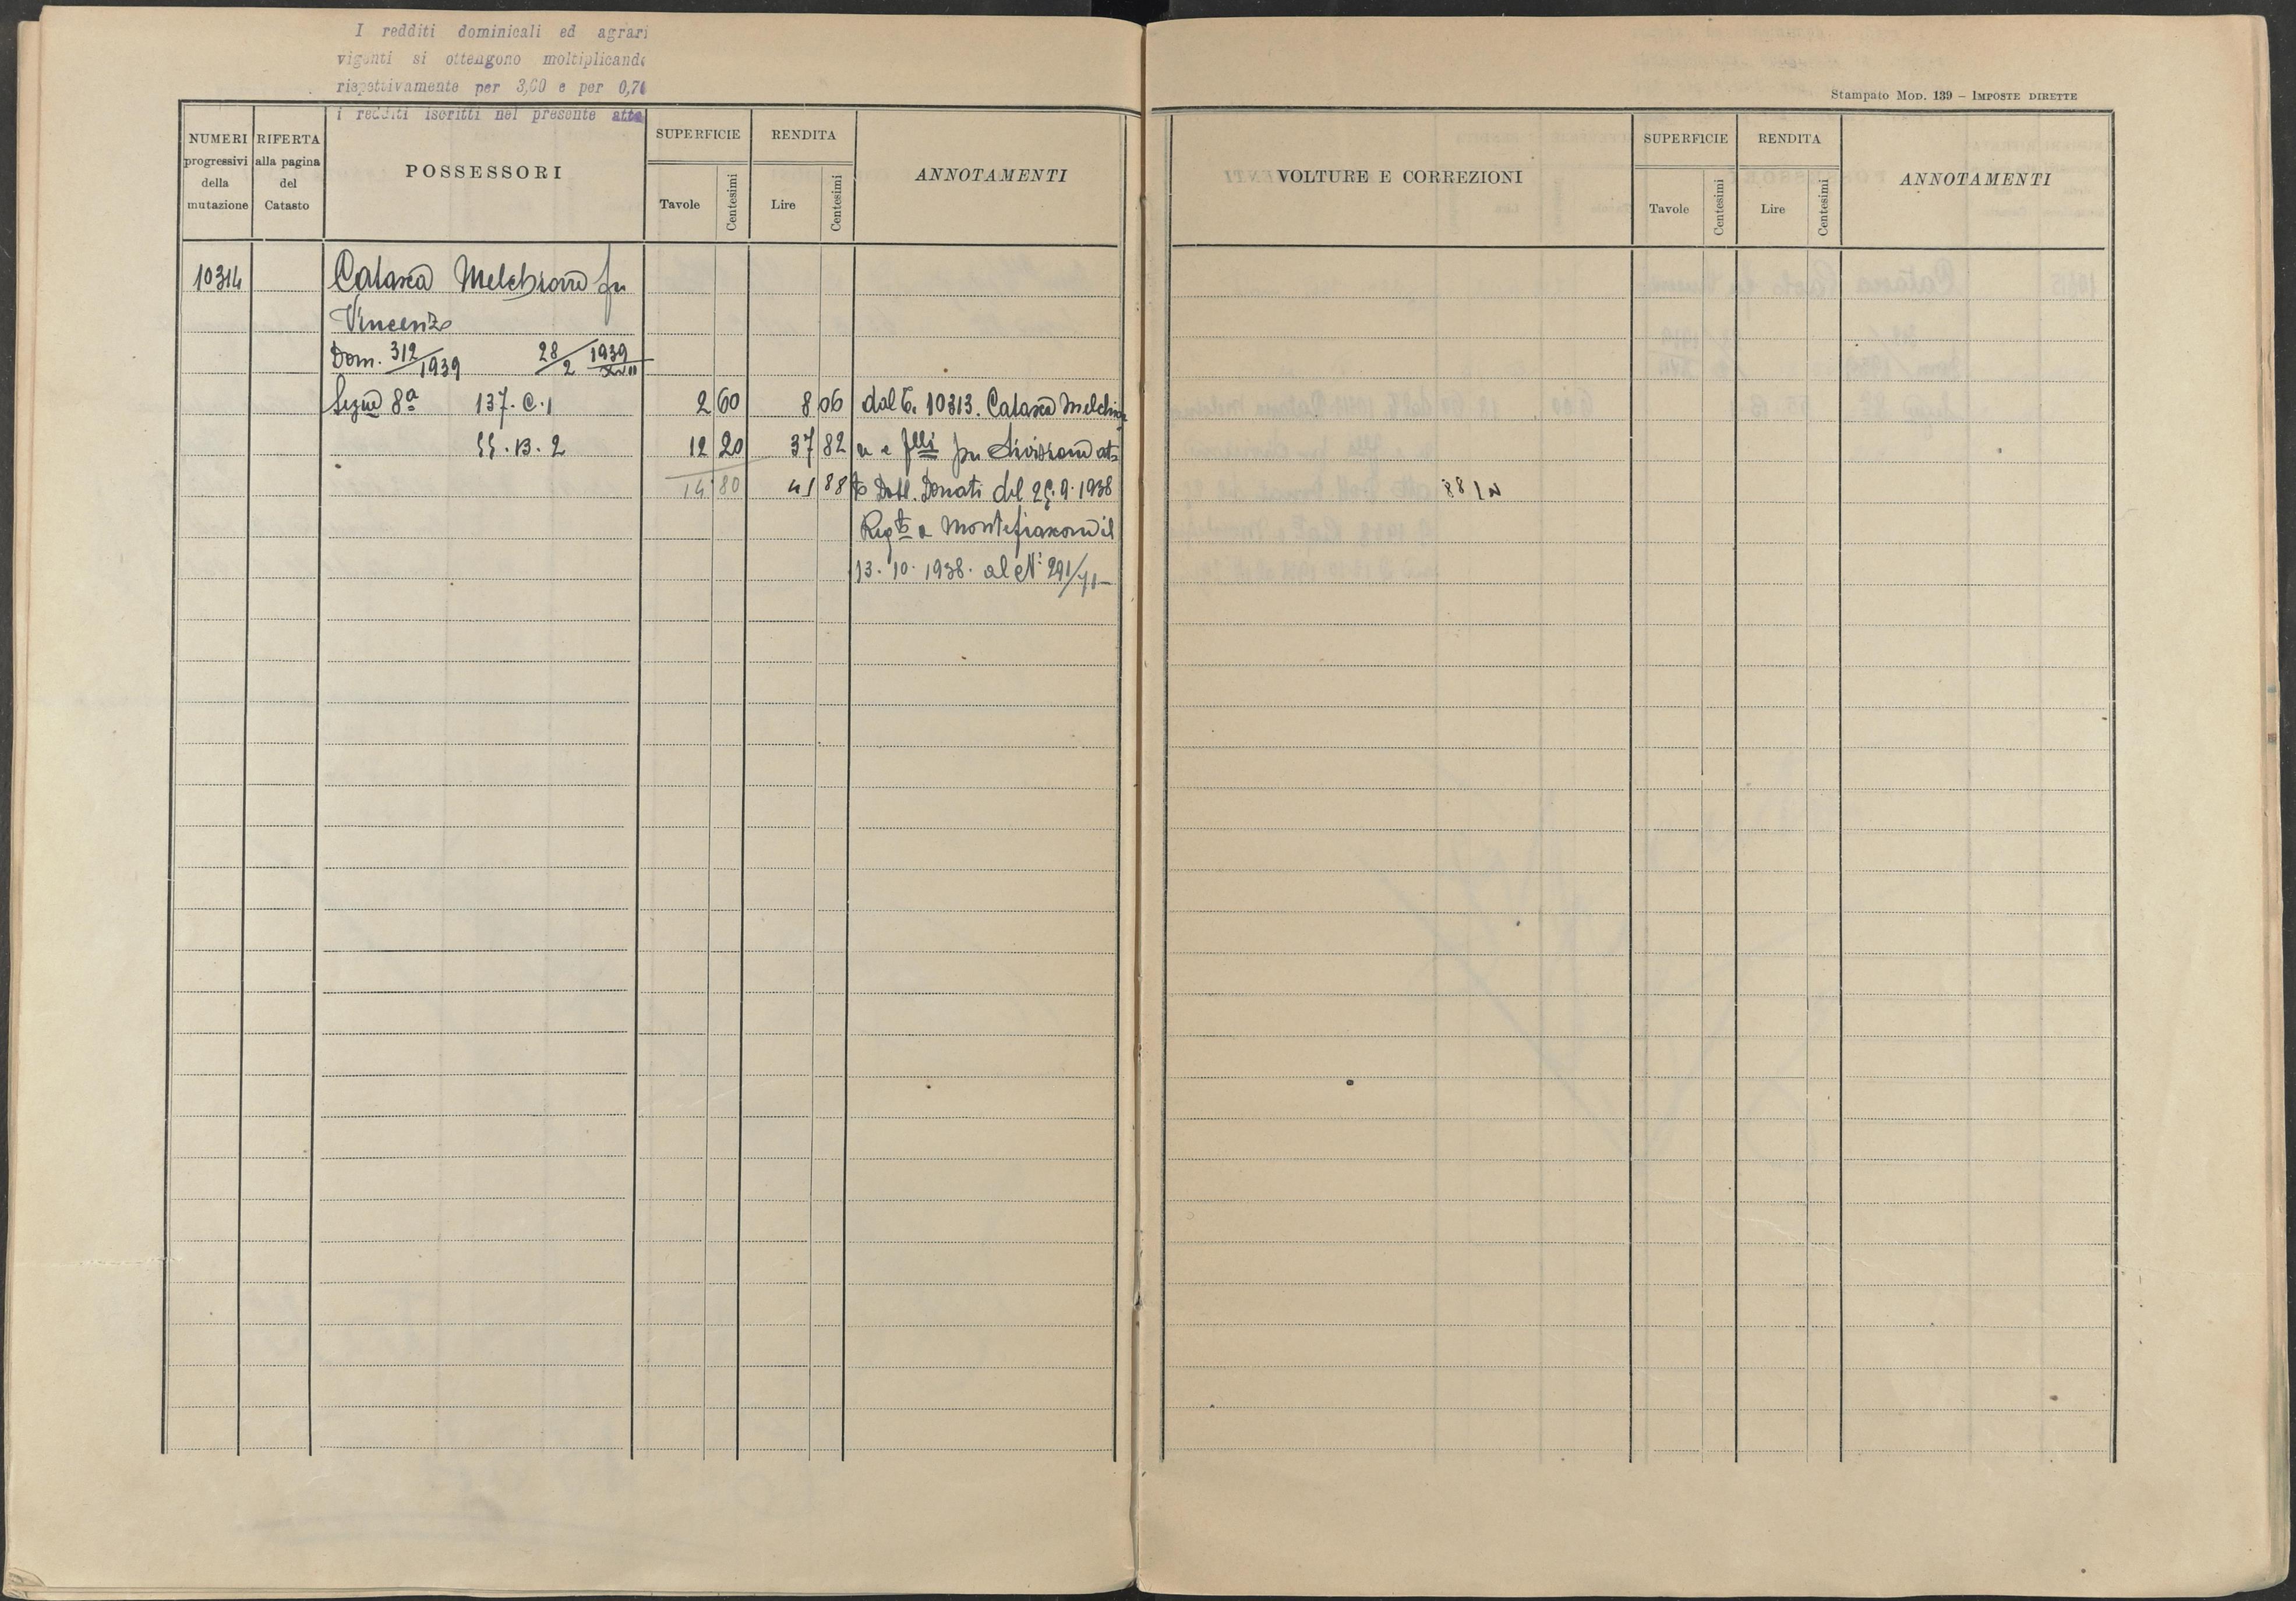 I redditi dominicali ed agrari
vigenti si ottengono moltiplicando
rispettivamente per 3,60 e per 0,70
i redditi iscritti nel presente atto
Stampato Mod. 139 – Imposte dirette
NUMERI progressivi della mutazione
RIFERTA alla pagina del Catasto
POSSESSORI
SUPERFICIE
Tavole
Centesimi
RENDITA
Lire
Centesimi
ANNOTAMENTI
VOLTURE E CORREZIONI
SUPERFICIE
Tavole
Centesimi
RENDITA
Lire
Centesimi
ANNOTAMENTI
10314 Melchiorre fu
Vincenzo
Dom. 312/1939 28/2 1939 XVII
Segue 8ª 137. C. 1 2 60 8 06 dal 10313. Melchior
55. B. 2 12 20 37 82 e f.lli per divisione at
14 80 45 88 to Dott. Donati del 25.9.1938
Reg.to a Montefiascone il
13. 10. 1938. al N: 291/71
88/N